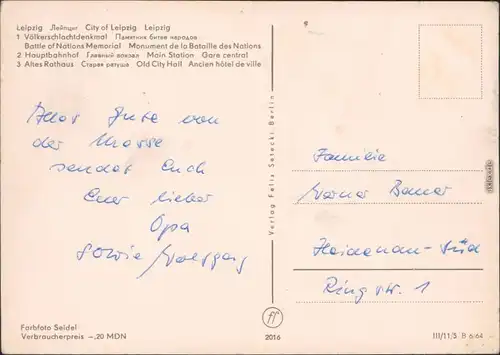 Leipzig Лейпциг City of Leipzig Leipzig
1 Völkerschlachtdenkmal Памятник битве народов
Battle of Nations Memorial Monument de la Bataille des Nations
2 Hauptbahnhof Главный вокзал Main Station Gare central
3 Altes Rathaus Старая ратуша Old City Hall Ancien hôtel de ville
Alles Gute von
der Messe
sendet Euch
Euer lieber
Opa
sowie Wolfgang
Verlag Felix Setecki Berlin
Familie
Werner
Heidenau-Süd
Ringstr. 1
Farbfoto Seidel
Verbraucherpreis -,20 MDN
2016
III/11/3 B 6/64